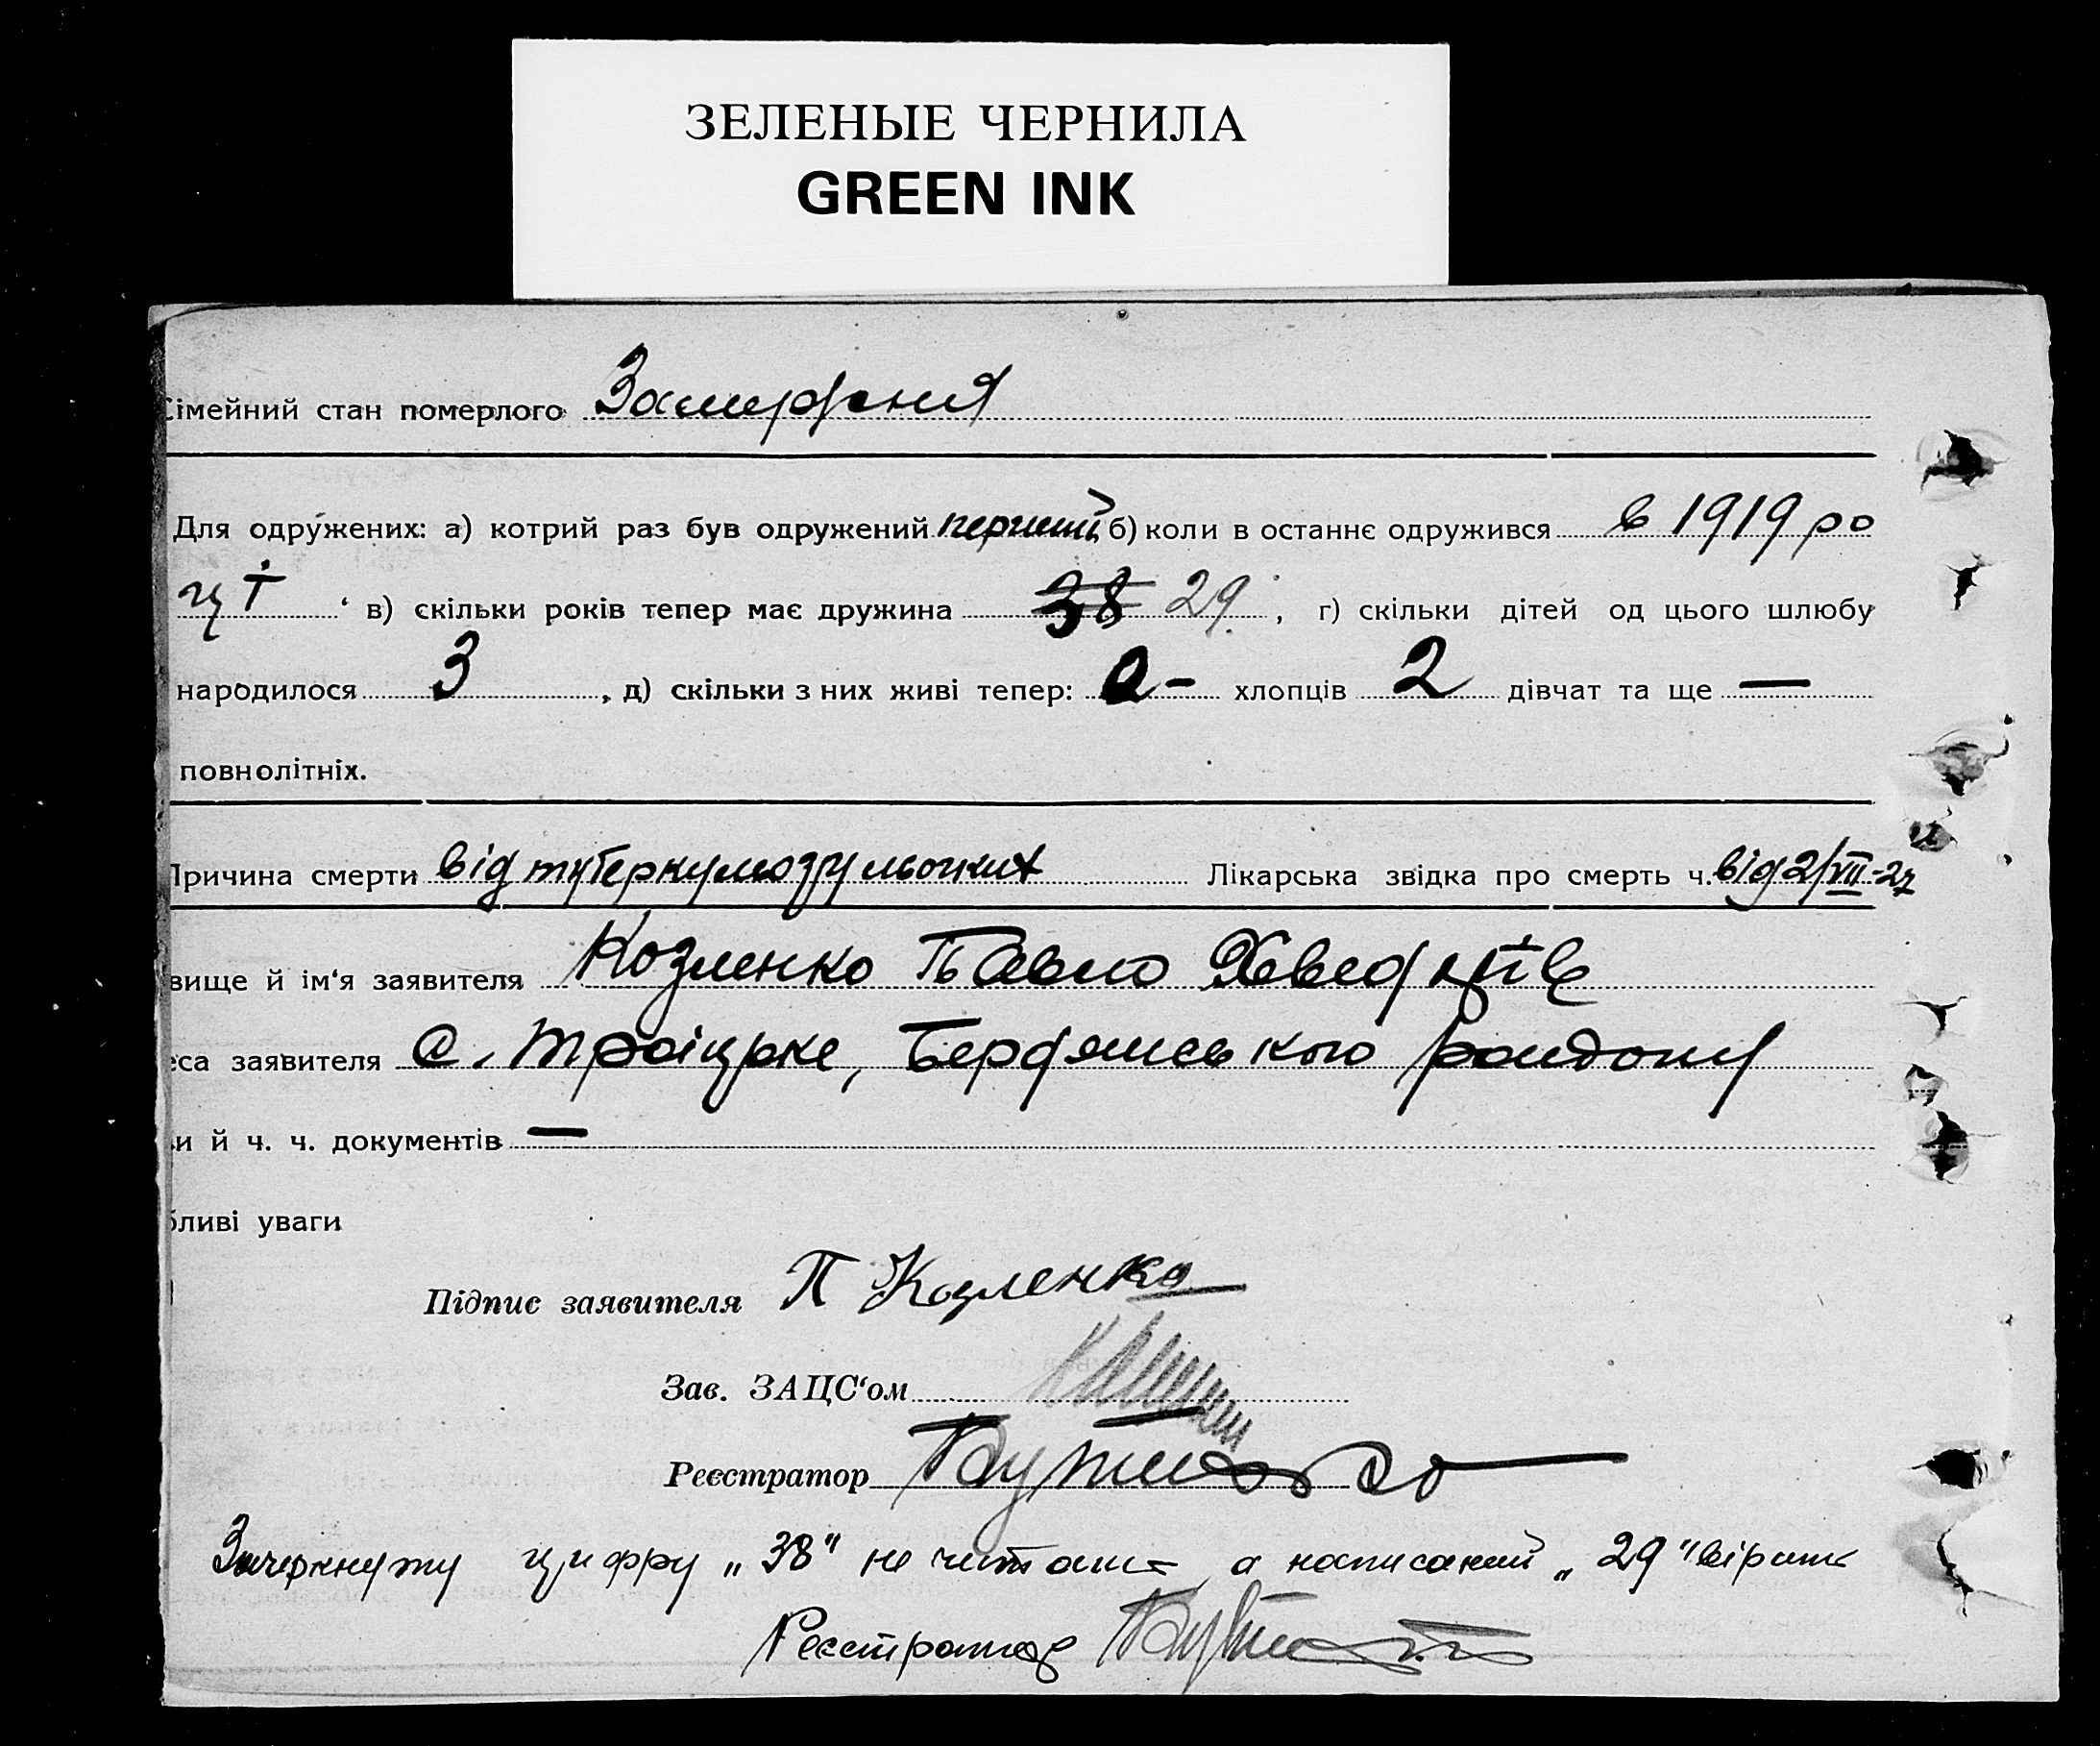 ЗЕЛЕНЫЕ ЧЕРНИЛА
GREEN INK
Сімейний стан померлого Замужня
Для одружених: а) котрий раз був одружений перший б) коли в останнє одружився в 1919 ро
ці ‘ в) скільки років тепер має дружина 38 29. , г) скільки дітей од цього шлюбу
народилося 3 , д) скільки з них живі тепер: 0 - хлопців 2 дівчат та ще —
повнолітніх.
Причина смерти від туберкульозу льогких Лікарська звідка про смерть ч. від 2/VII-27
вище й ім‘я заявителя Козленко Павло Хведорів
еса заявителя с. Троіцьке, Бердянського району
и й ч. ч. документів —
бливі уваги
Підпис заявителя П Козленко
Зав. ЗАЦС‘ом
Реєстратор
Зачеркнуту цифру „38“ не читать, а написаний „29“ вірить
Реєстратор